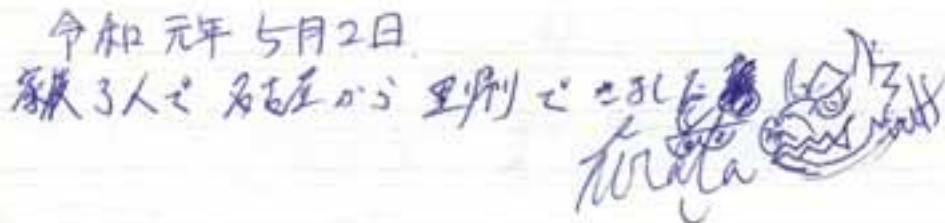 令和元年5月2日
家族3人で 名古屋から 里帰りできました